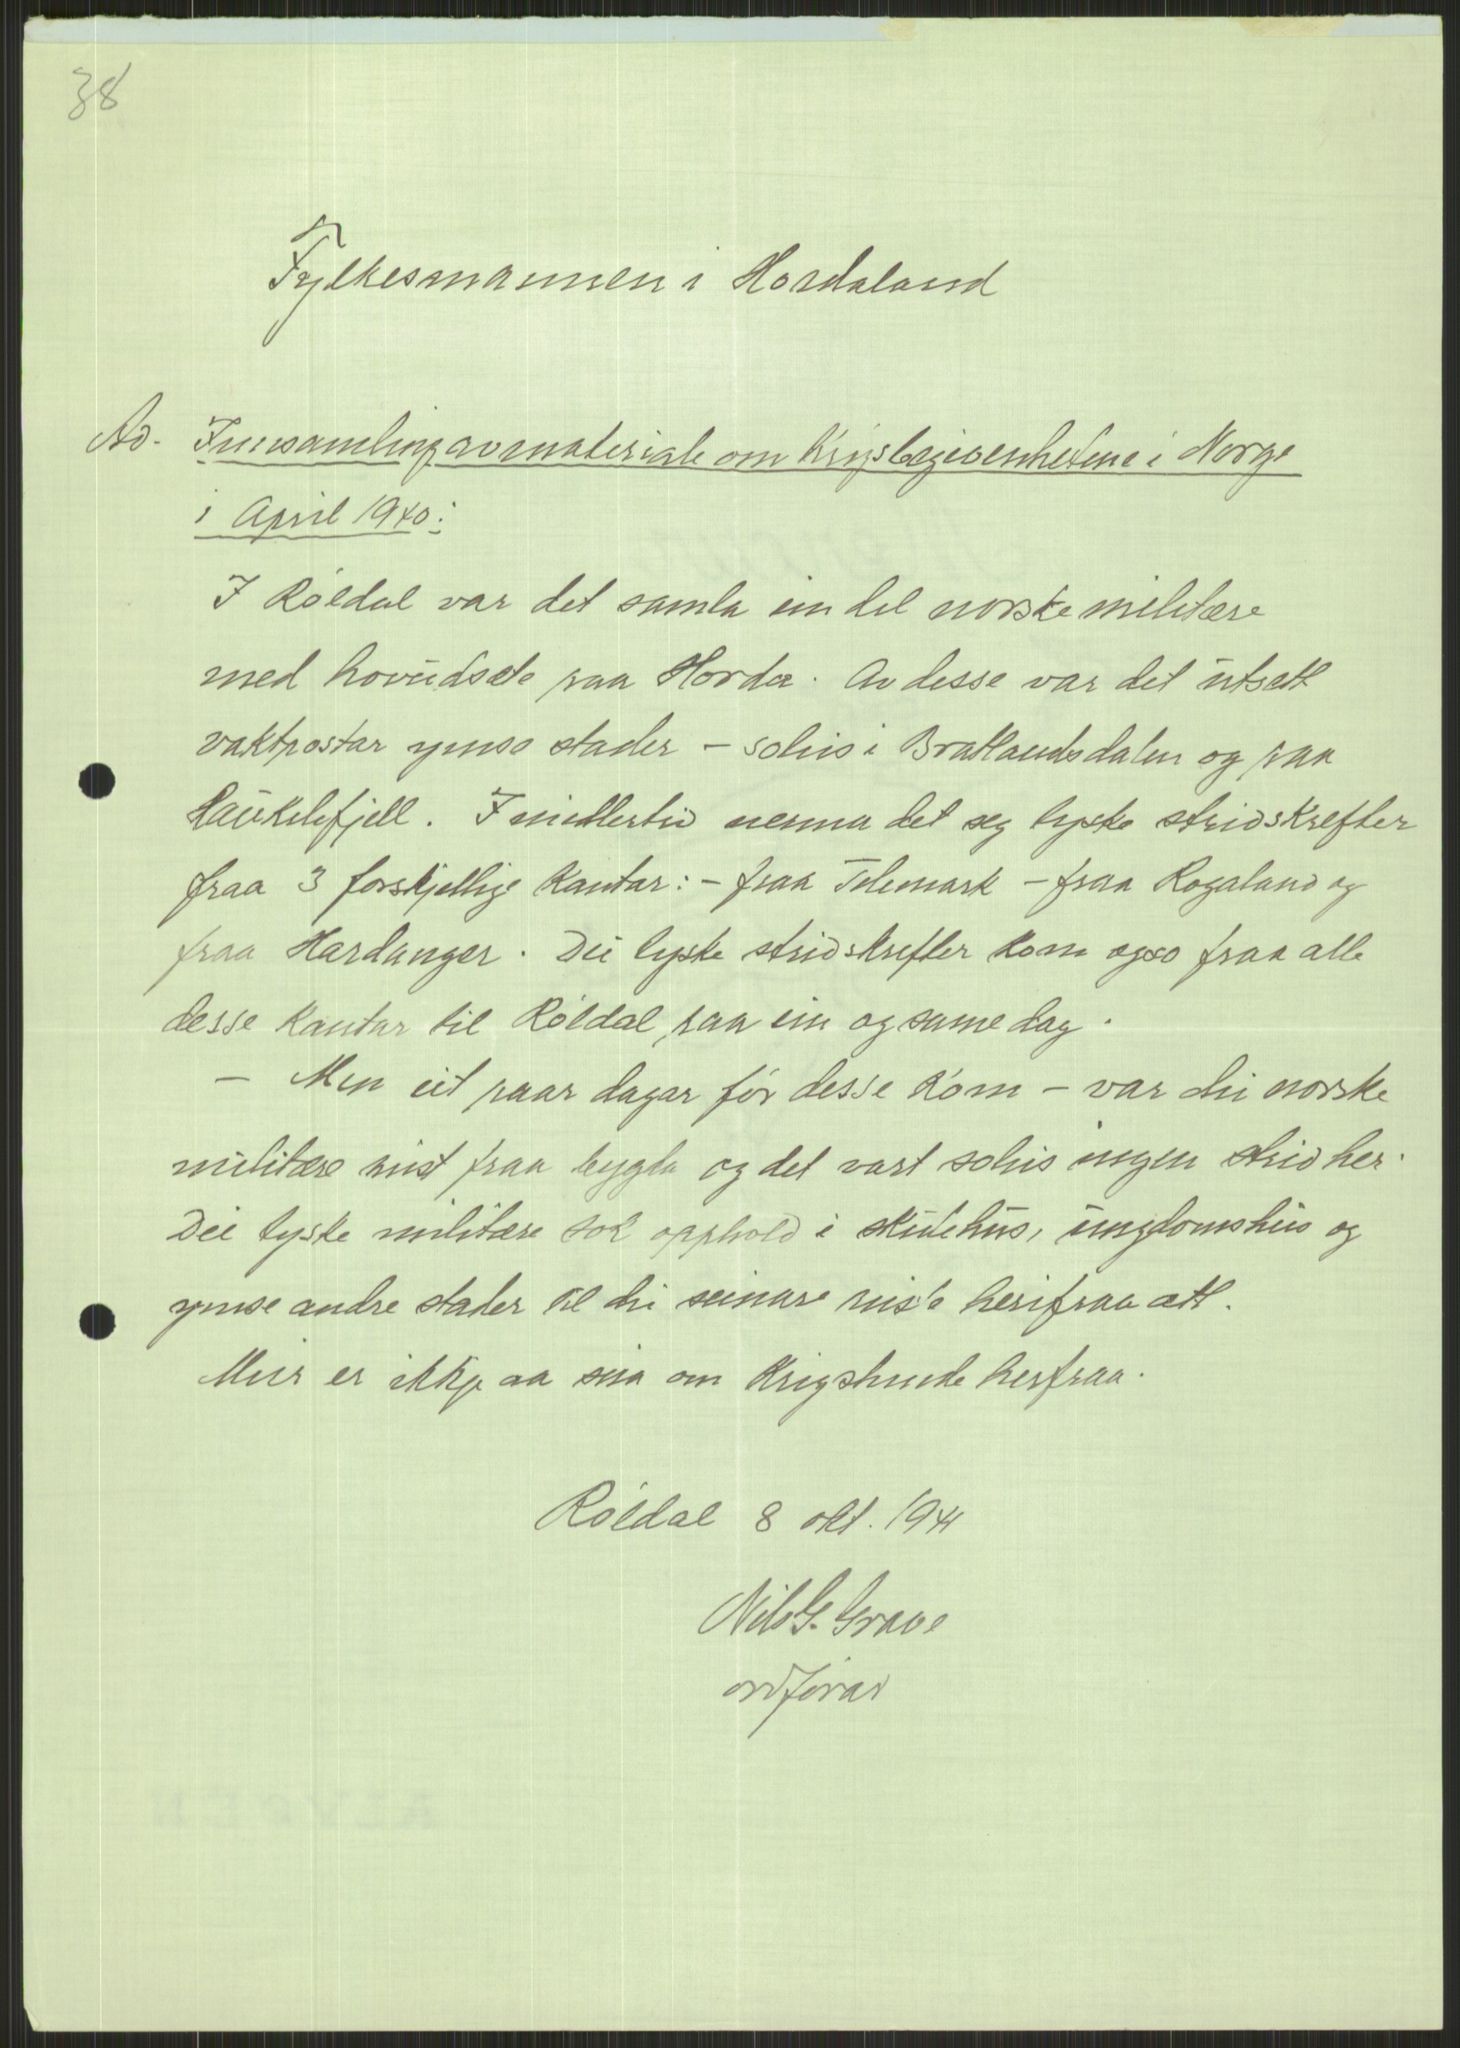 38
Fylkesmannen i Hordaland
Ad. Innsamling av materiale om Krigsbegivenhetene i Norge
i April 1940:
I Røldal var det samla ein del norske militære
med hovudsete paa Horda. Av desse var det utsett
vaktpostar ymse stader – soleis i Bratlandsdalen og paa
Haukelifjell. Imidlertid nerma det seg tyske stridskrefter
fraa 3 forskjellige Kantar: – fraa Telemark – fraa Rogaland og
fraa Hardanger. Dei tyske stridskrefter kom ogso fraa alle
desse Kantar til Røldal paa ein og same dag.
– Men eit paar dagar før desse kom – var dei norske
militære reist fraa bygda og det vart soleis ingen strid her.
Dei tyske militære tok opphold i skulehus, ungdomshus og
ymse andre stader til dei seinare reiste herifraa att.
Meir er ikkje aa seia om Krigshende herfraa.
Røldal 8 okt. 1941
Nils G. Grave
ordførar